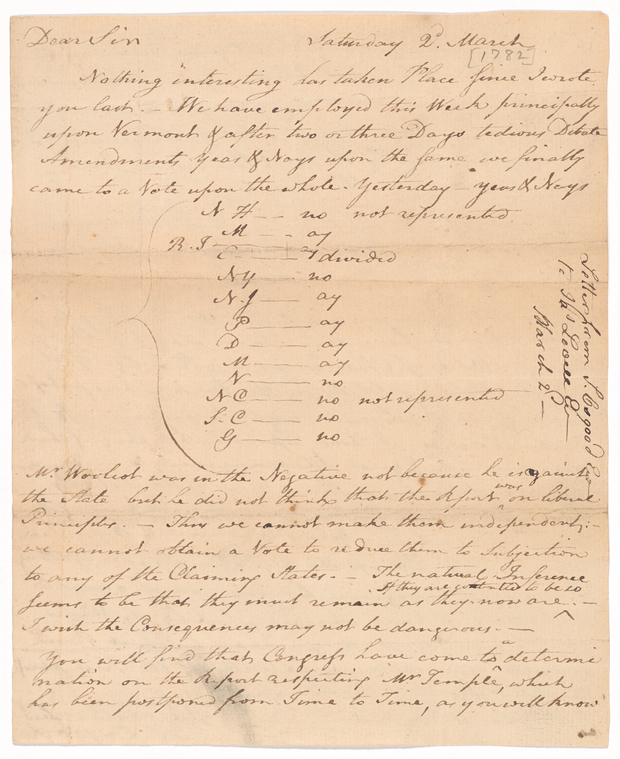 Dear Sir Saturday 2d. March
[1782]
Nothing interesting has taken Place since I wrote
you last. — We have employed this Week principally
upon Vermont & after two or three Days tedious Debate
Amendments Yeas & Nays upon the same we finally
came to a Vote upon the whole. Yesterday — yeas & Nays
N H — — no not represented
M — — ay
R. I —
C — ay divided
NY — no
N. J — ay
P — ay
D — ay
M — ay
V — no
N C — no not represented
S. C — no
G — no
Mr. Woolcot was in the Negative not because he is against
the State but he did not think that the Report was on liberal
Principles. — Thus we cannot make them independent; —
we cannot obtain a Vote to reduce them to Subjection
to any of the Claiming States. — The natural Inference
seems to be that they must remain as they now are. —
If they are contented to be so
I wish the Consequences may not be dangerous. —
You will find that Congress have come to a determi
nation on the Report respecting Mr Temple, which
has been postponed from Time to Time, as you will know
Letter from S. Osgood Esqr
to Lovell Esqr
March 2d —